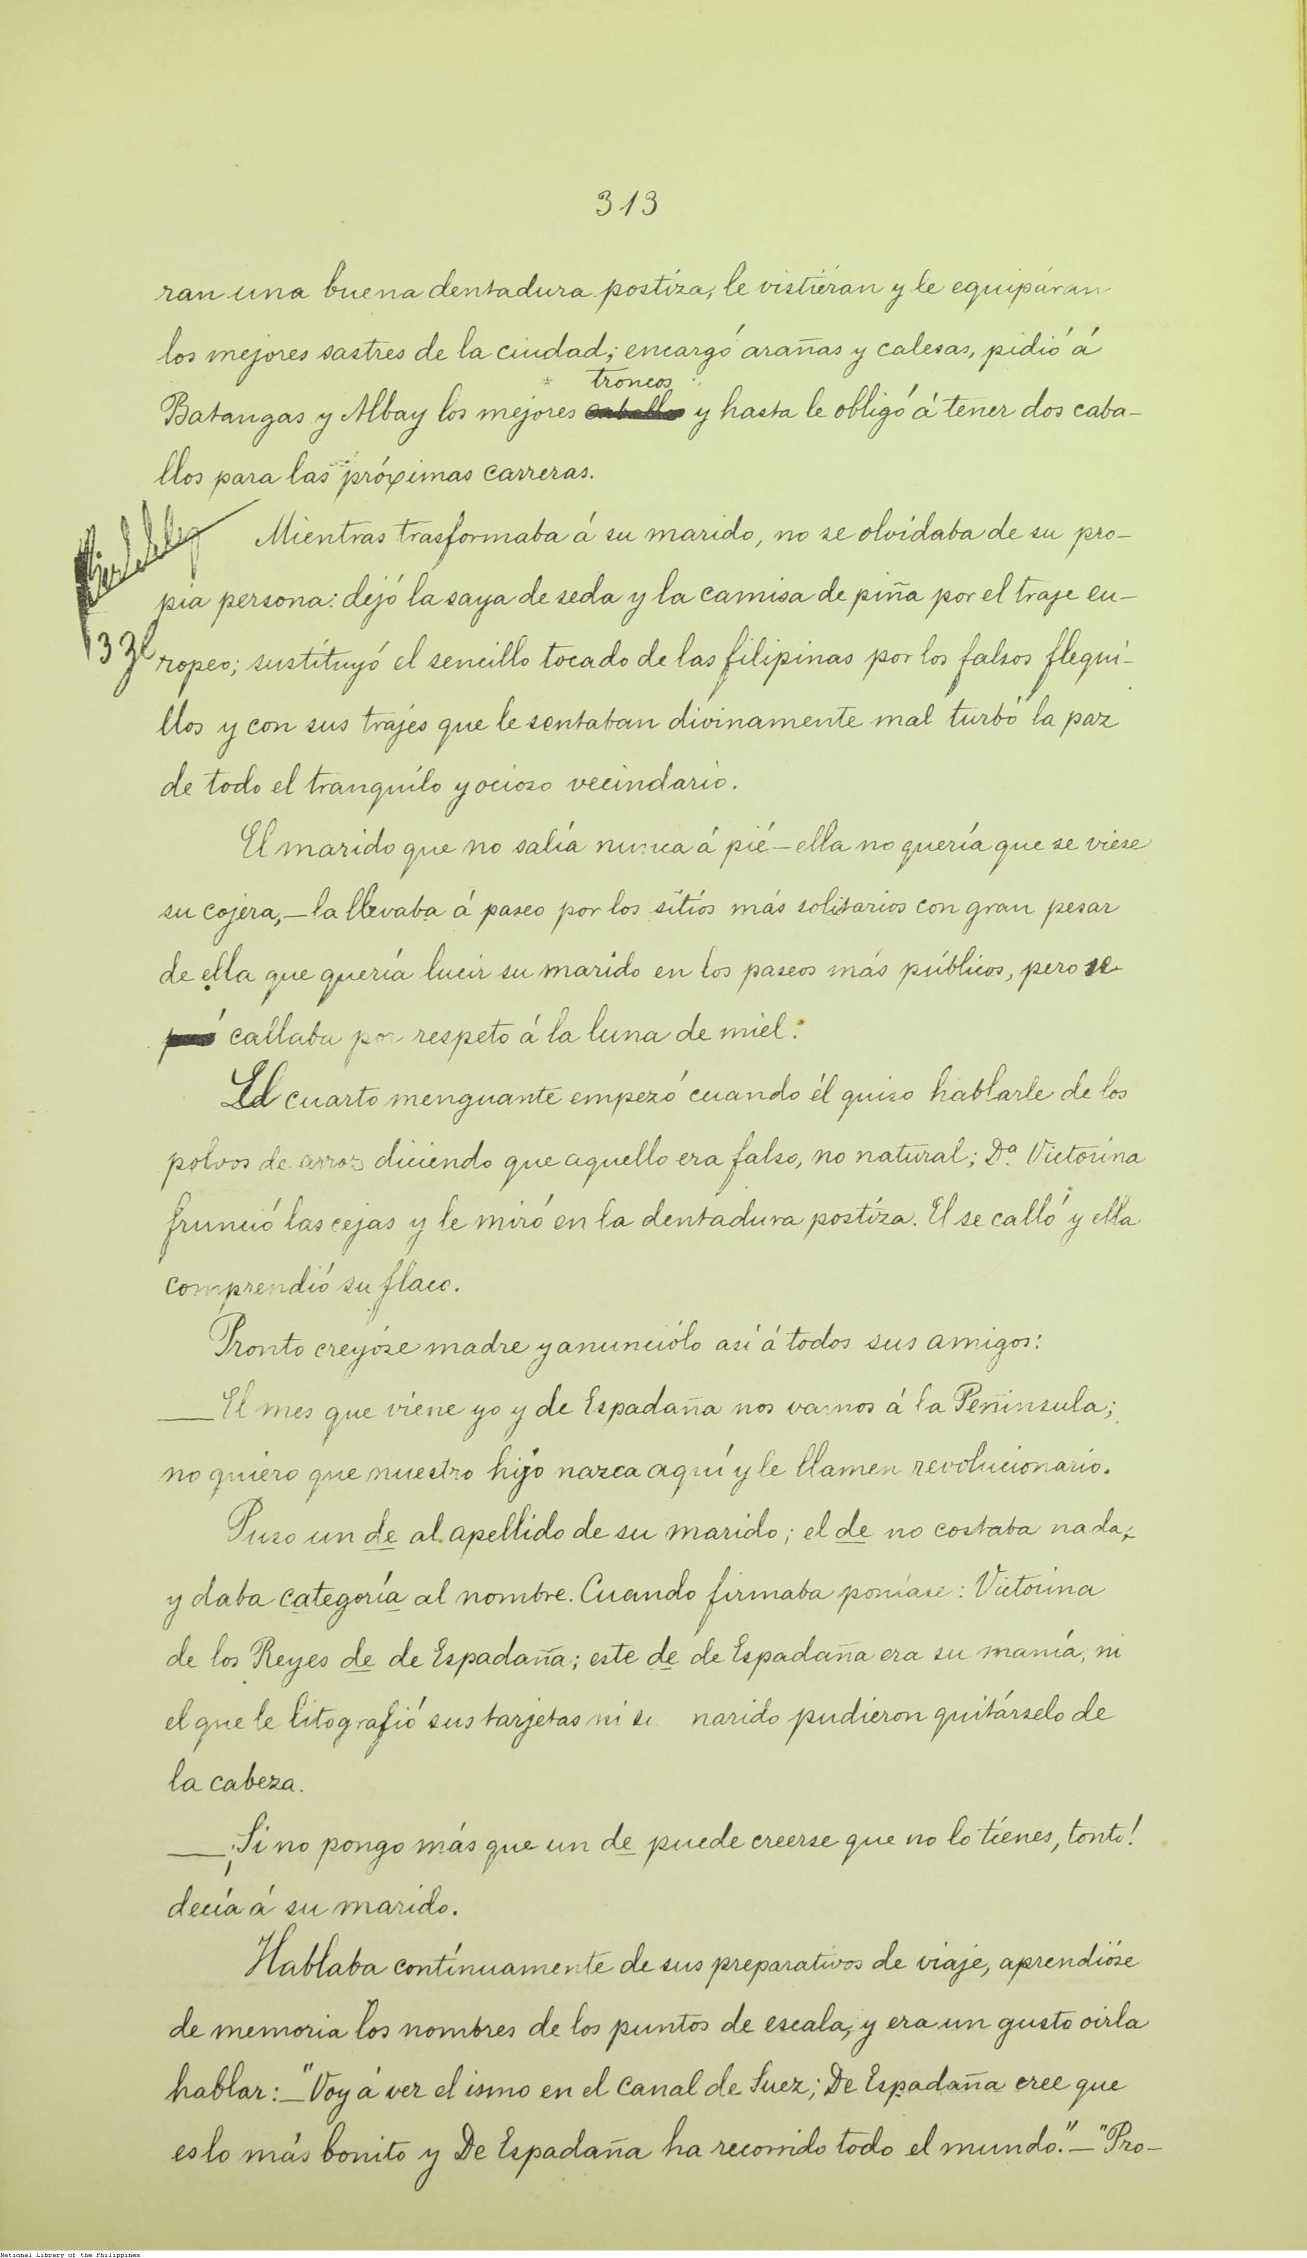 313
ran una buena dentadura postiza, le vistiéran y le equipáran
los mejores sastres de la ciudad; encargó arañas y calesas, pidió á
troncos
Batangas y Albay los mejores caballos y hasta le obligó á tener dos caba-
llos para las próximas carreras.
Mientras trasformaba á su marido, no se olvidaba de su pro-
pia persona: dejó la saya de seda y la camisa de piña por el traje eu-
33
ropeo; sustituyó el sencillo tocado de las filipinas por los falsos flequi-
llos y con sus trajes que le sentaban divinamente mal turbó la paz
de todo el tranquilo y ocioso vecindario.
El marido que no salía nunca á pié — ella no quería que se viese
su cojera, — la llevaba á paseo por los sitios más solitarios con gran pesar
de ella que quería lucir su marido en los paseos más públicos, pero se
callaba por respeto á la luna de miel.
El cuarto menguante empezó cuando él quiso hablarle de los
polvos de arroz diciendo que aquello era falso, no natural; Dª. Victorina
frunció las cejas y le miró en la dentadura postiza. El se calló y ella
comprendió su flaco.
Pronto creyóse madre y anunciólo así á todos sus amigos:
— El mes que viene yo y de Espadaña nos vamos á la Peñinsula;
no quiero que nuestro hijo nazca aquí y le llamen revolucionario.
Puso un de al apellido de su marido; el de no costaba nada,
y daba categoría al nombre. Cuando firmaba poníase: Victorina
de los Reyes de de Espadaña; este de de Espadaña era su manía; ni
el que le litografió sus tarjetas ni su marido pudieron quitárselo de
la cabeza.
— ¡Si no pongo más que un de puede creerse que no lo tienes, tonto!
decía á su marido.
Hablaba contínuamente de sus preparativos de viaje, aprendióse
de memoria los nombres de los puntos de escala, y era un gusto oirla
hablar: — "Voy á ver el ismo en el canal de Suez; De Espadaña cree que
es lo más bonito y De Espadaña ha recorrido todo el mundo." — "Pro-
National Library of the Philippines